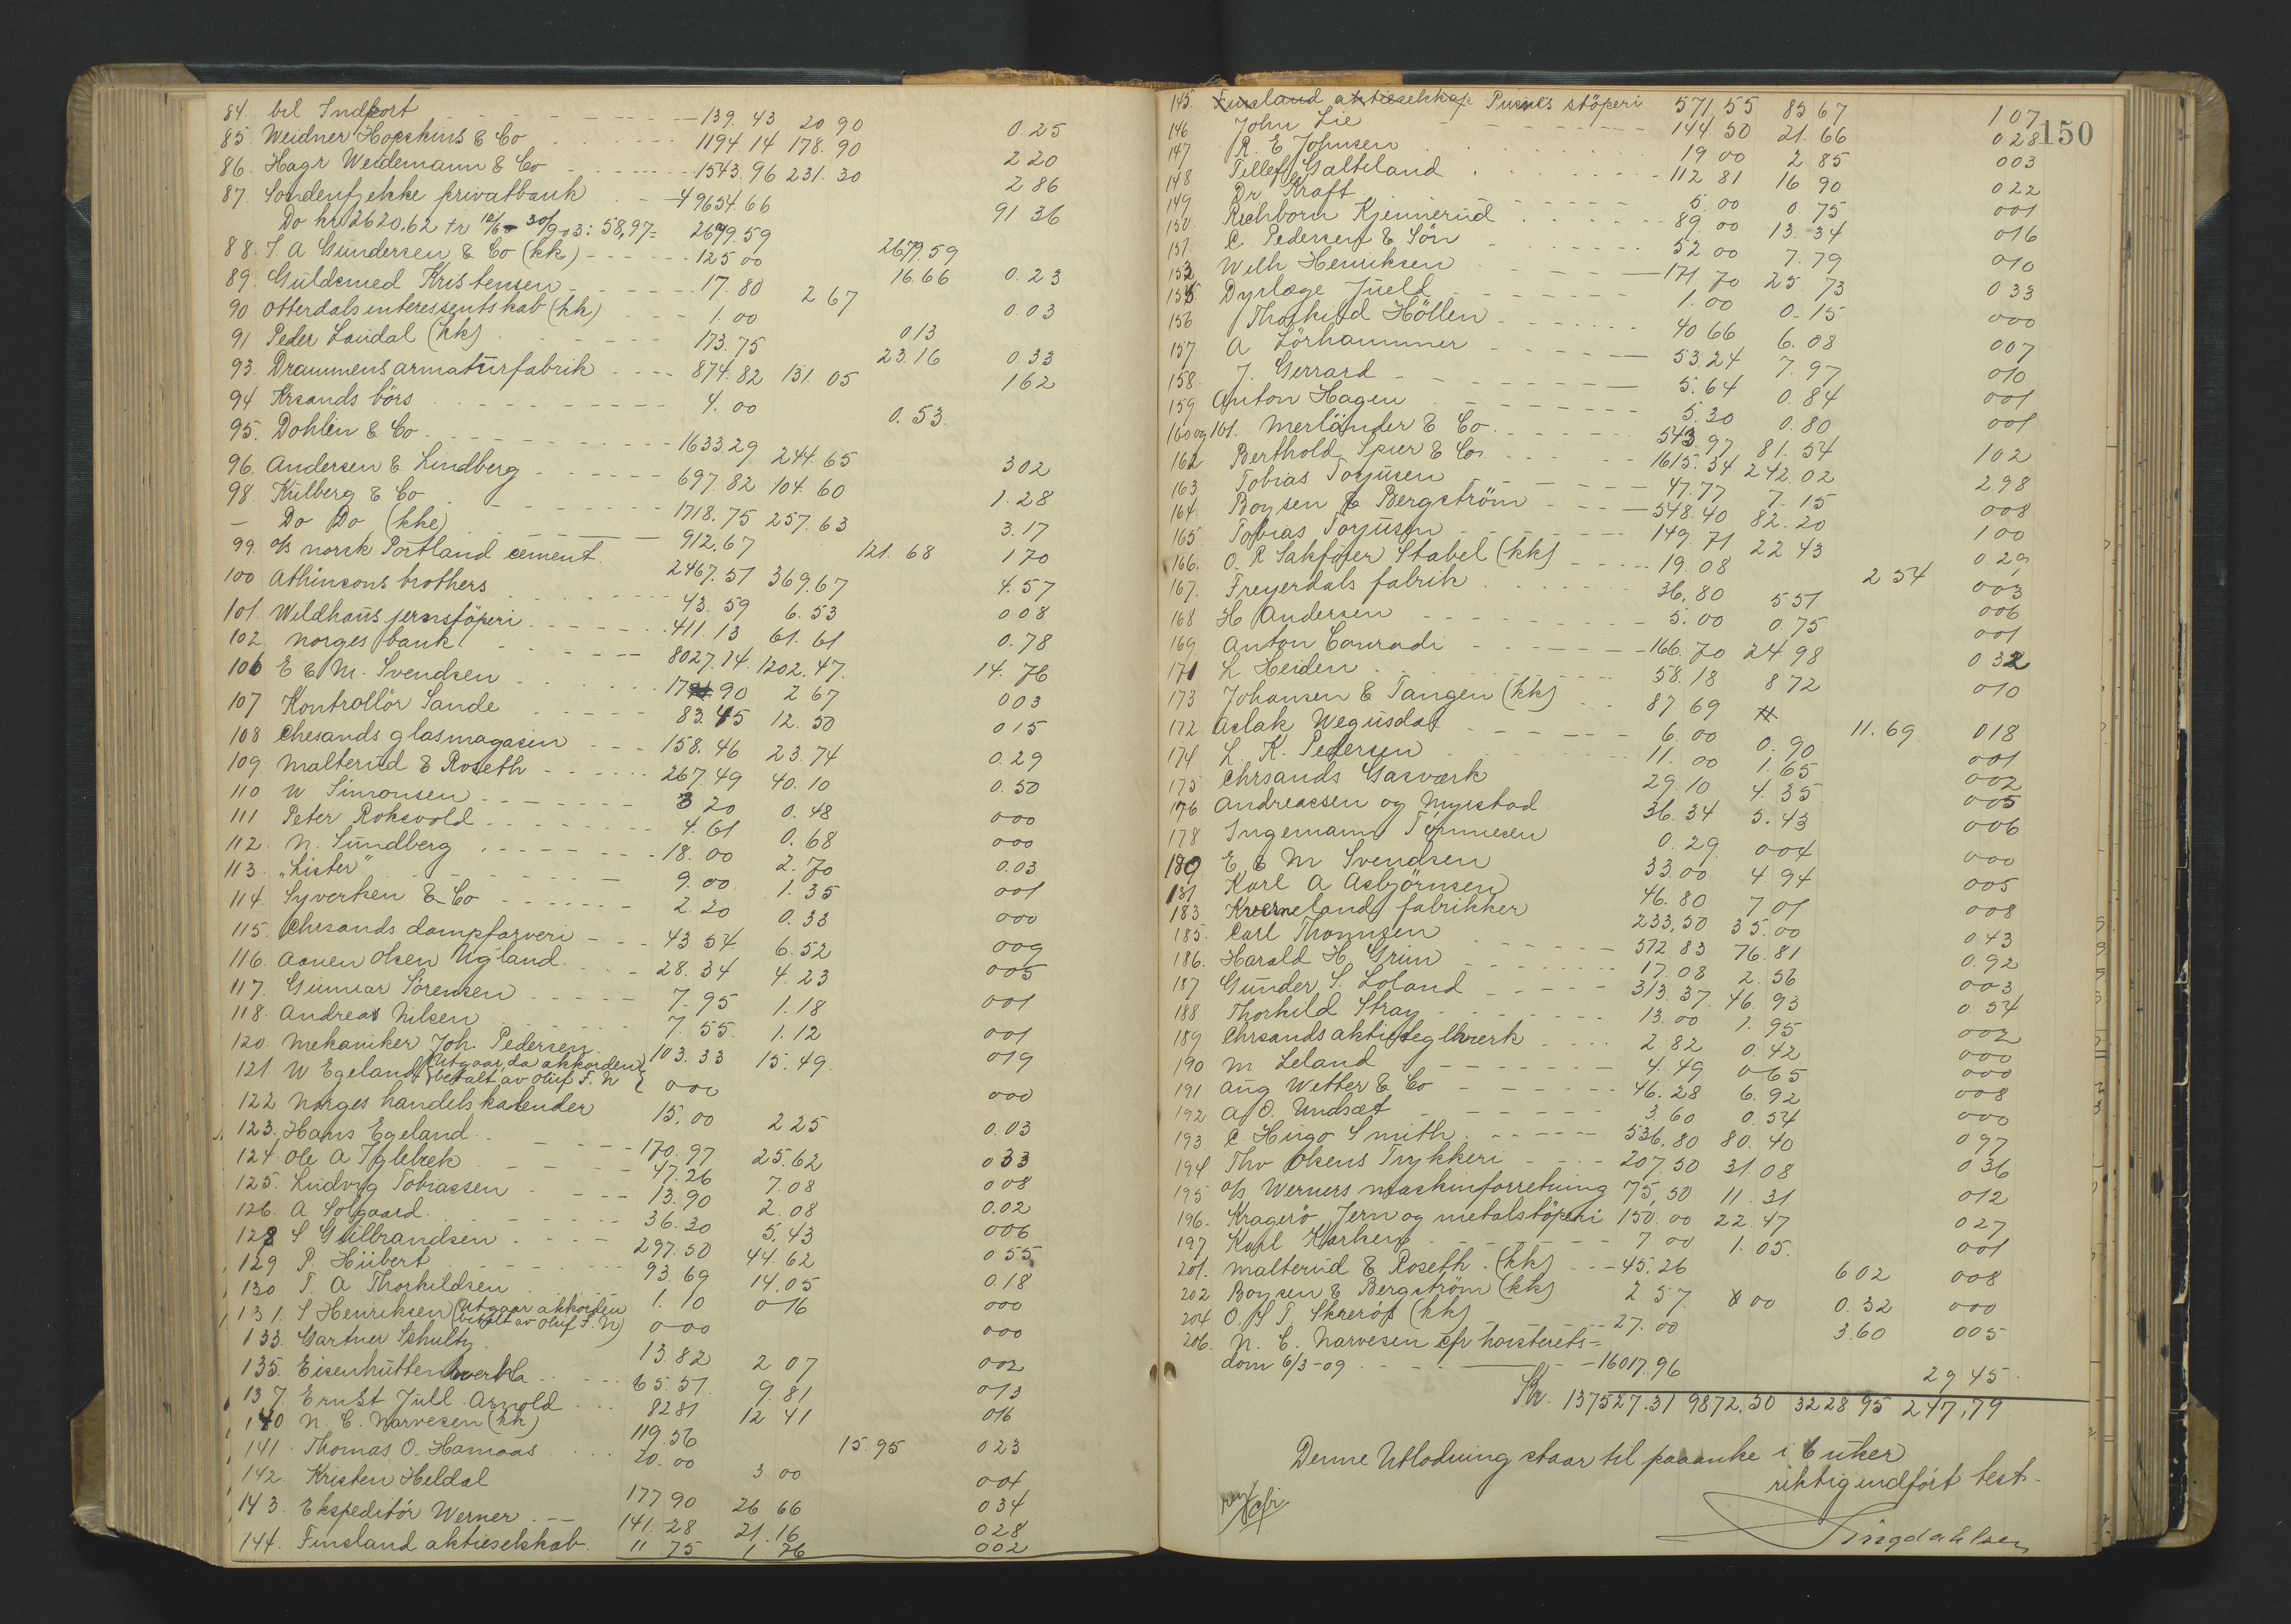 84. bil Indkort 139.43 20 90 0.25
85. Weidner Hopskins & Co 1194.14 178.90 2 20
86. Hagr Weidemann & Co 1543.96 231.30 2 86
87. Söndenfjelske privatbank 49654.66 91 36
Do kr 2620.62 + r 12/6 - 30/9 03: 58,97 = 2679.59 2679.59
88. J. A Gundersen & Co (kk) 125 00 16.66 0.23
89. Guldsmed Kristensen 17.80 2 67 0.03
90 Otterdals interessentskab (kk) 1.00 0.13
91 Peder Loudal (kk) 173.75 23.16 0.33
93. Drammens armaturfabrik 874.82 131.05 162
94 Krsands börs 4.00 0.53
95. Dohlen & Co 1633.29 244.65 302
96. Andersen & Lindberg 697.82 104.60 1.28
98. Kulberg & Co 1718.75 257.63 3.17
— Do Do (kke) 912.67 121.68 170
99. o/s norsk Portland cement. 2467.51 369.67 4.57
100 Athinsons brothers 43.59 6.53 008
101. Wildhaus jernstöperi 411.13 61.61 0.78
102. Norges bank 8027.14 1202.47. 14.76
106 E & M. Svendsen 17 90 2 67 003
107 Kontrollör Sande 83.45 12.50 015
108 Chrsands glasmagasin 158.46 23.74 0.29
109. Malterud & Roseth 267.49 40.10 0.50
110 W Simonsen 3 20 0.48 000
111 Peter Roksvold 4.61 0.68 000
112. N. Sundberg 18.00 2.70 0.03
113. „Lister” 9.00 1.35 001
114. Syverken & Co 2.20 0.33 000
115. Chrsands dampfarveri 43.54. 6.52 009
116. Aanen Olsen Ugland 28.34 4.23 005
117. Gunnar Sörensen 7.95 1.18 001
118. Andreas Nilsen 7.55. 1.12 001
120. Mekaniker Joh. Pedersen 103.33 15.49. 019
121. W Egeland (Utgaar da akkorden betalt av Oluf F. N) 000 000
122 Norges handelskalender 15.00 225 0.03
123. Hans Egeland 170.97 25.62 033
124. Ole A Iglebæk 47.26 7.08 008
125. Ludvig Tobiassen 13.90 2.08 0.02
126. A Solgaard 36.30 5.43 006
128 S Gulbrandsen 297.50 44.62 055
129 P. Hübert 93.69 14.05 0.18
130 T. A Thorkildsen 1.10 016 000
131. S Henriksen (Utgaar akkorden betalt av Oluf F. N) 000 000
133. Gartner Schultz 13.82 2 07 002
135. Eisenhüttenwerk 65.51. 9.81 013
137. Ernst Jull Arnold 8281 12 41 016
140 N. C. Narvesen (kk) 119.56 15.95 023
141. Thomas O. Hamaas 20.00 3 00 004
142. Kristen Heldal 177 90 26 66 034
143. Ekspeditör Werner 141.28 21.16 028
144. Finsland aktieselskab 11 75 1 76 002
145. Finsland aktieselskap Pusnes stöperi 571.55 85 67 107
150
146 John Lie 144.50 21.66 028
147 R. E Johnsen 19 00 2 85 003
148 Tellef Galteland 112 81 16 90 022
149 Dr Kraft 5.00 0.75 001
150 Reichborn Kjennerud 89.00 13.34 016
151. C. Pedersen & Sön 52 00 7.79 010
152 Wilh Henriksen 171 70 25.73 033
155. Dyrlæge Jueld 1.00 0.15 000
156 Thorkild Höllen 40 66 6.08 007
157 A Lörhammer 53.24 7.97 010
158. J. Gerrard 5.64 0.84 001
159 Anton Hagen 5.30 0.80 001
160 og 161. Merländer & Co 543.97 81.54 102
162 Berthold Spier & Co. 1615.34 242.02 298
163 Tobias Torjusen 47.77 7.15 008
164. Boysen & Bergström 548.40 82.20 100
165. Tobias Torjusen 149.71 22 43 0.29
166. O. R Sakförer Stabel (kk) 19.08 2 54 003
167. Freyerdals fabrik 36.80 551 006
168 H Andersen 5.00 0.75 001
169. Anton Conradi 166.70 24.98 032
171 L Heiden 58.18 872 010
173 Johansen & Tangen (kk) 87.69 11.69 018
172 Aslak Wegusdal 6.00 0.90 001
174. L. K. Pedersen 11.00 1.65 002
175 Chrsands Gasværk 29.10 4.35 005
176 Andreassen og Myrstad. 36.34 5.43 006
178 Ingemann Tönnesen 0.29 004 000
180 E & M Svendsen 33.00 4.94 005
181 Karl A Asbjörnsen 46.80 7 01 008
183 Kverneland fabrikker 233,50 35.00 043
185. Carl Thomsen 512 83 76.81 0.92
186. Harald H. Grim 17.08 2.56 003
187 Gunder S. Loland 313.37. 46.93 0.54
188 Thorkild Stray 13.00 1.95 002
189 Chrsands aktieteglverk 2.82 0.42 000
190 M. Leland 4.49 065 000
191 Aug Wetter & Co 46.28 6.92 008
192 A. O. Undsæt 3.60 0.54 000
193. C. Hugo Smith 536.80 80.40 097
194 Thv Olsens Trykkeri 207.50 31.08 036
195 o/s Werners maskinforretning 75,50 11.31 012
196. Kragerö Jern og metalstöperi 150.00 22.47 027
197 Karl Karlsen 7.00 1.05. 001
201. Malterud & Roseth (kk) 45.26 602 008
202 Boysen & Bergström (kk) 2 37. 00 0.32 000
204 O. S T. Skreros (kk) 27.00 3.60 005
206. N. C. Narvesen cfr hoiesterets=
dom 6/3-09 16017.96 29 45.
Kr. 137527.31 9872.50 3228 95 247.79
Denne Utlodning staar til paaanke i 6 uker
riktig indfört test.
Singdahlsen